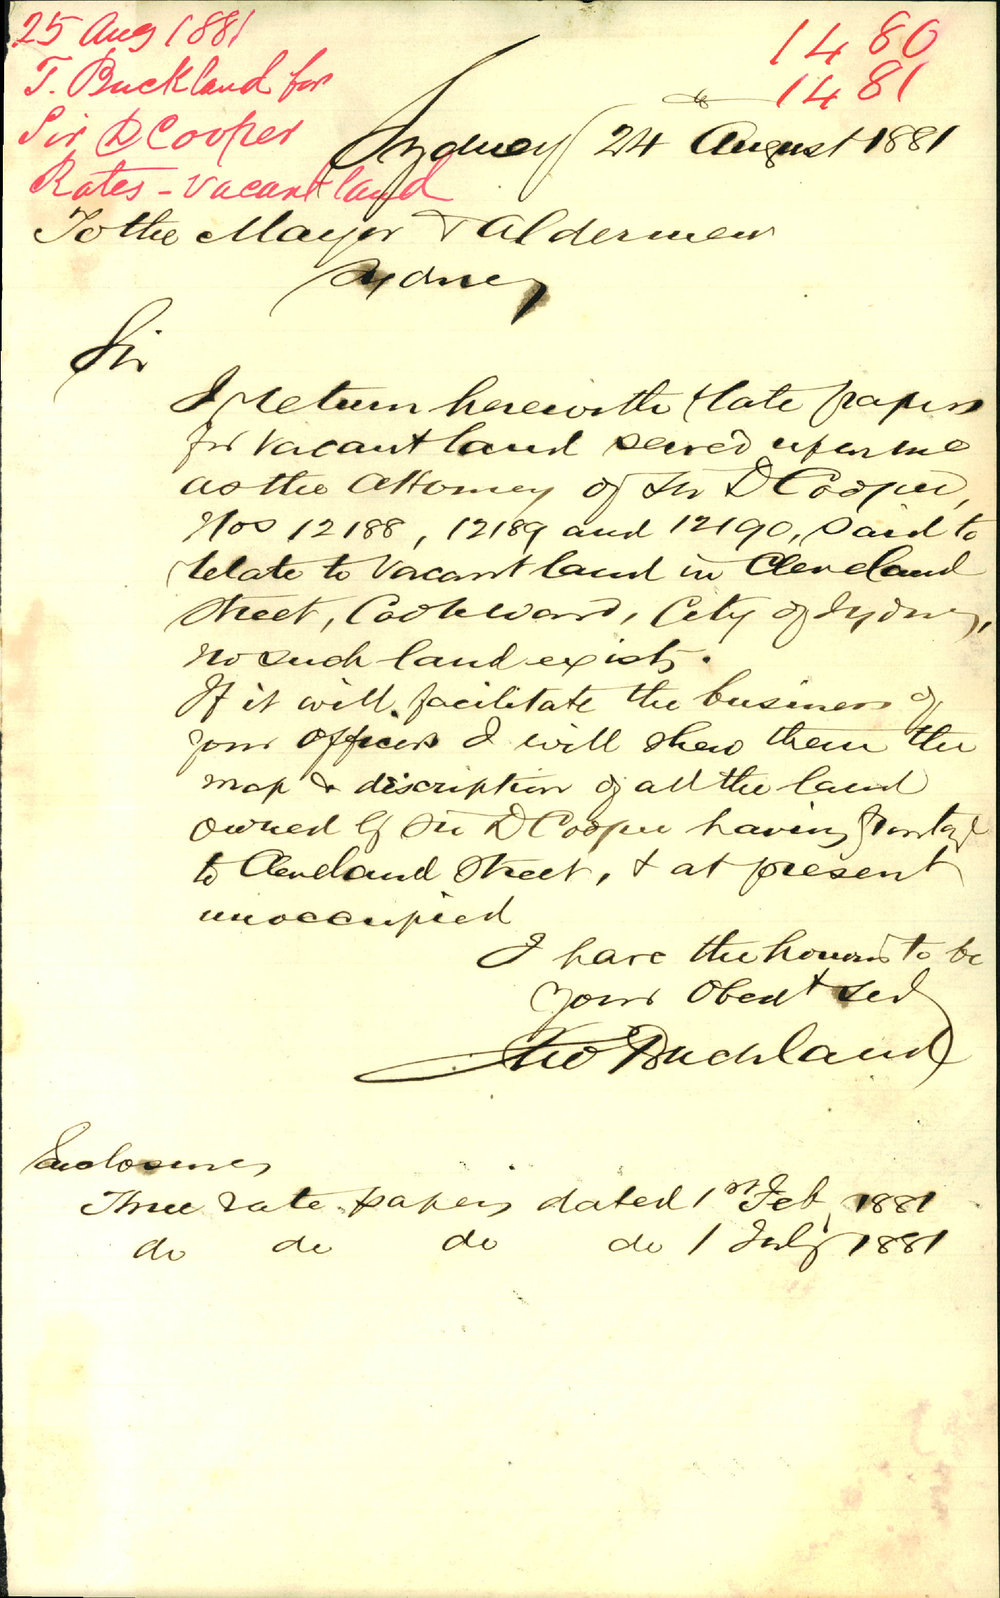 25 Aug 1881
T. Buckland for
Sir D Cooper
Rates - Vacant land
1480
1481
Sydney 24 August 1881
To the Mayor & Aldermen
Sydney
Sir
I return herewith rate papers
for vacant land served upon me
as the Attorney of Sir D Cooper,
Nos 12188, 12189 and 12190, said to
relate to vacant land in Cleveland
Street, Cook Ward, City of Sydney,
no such land exists.
If it will facilitate the business of
your officers I will shew them the
map & discription of all the land
owned by Sir D Cooper having frontage
to Cleveland Street, & at present
unoccupied
I have the honour to be
Your Obedt Servt
Thos Buckland
Enclosures
Three rate papers dated 1st Feb 1881
do do do do 1 July 1881